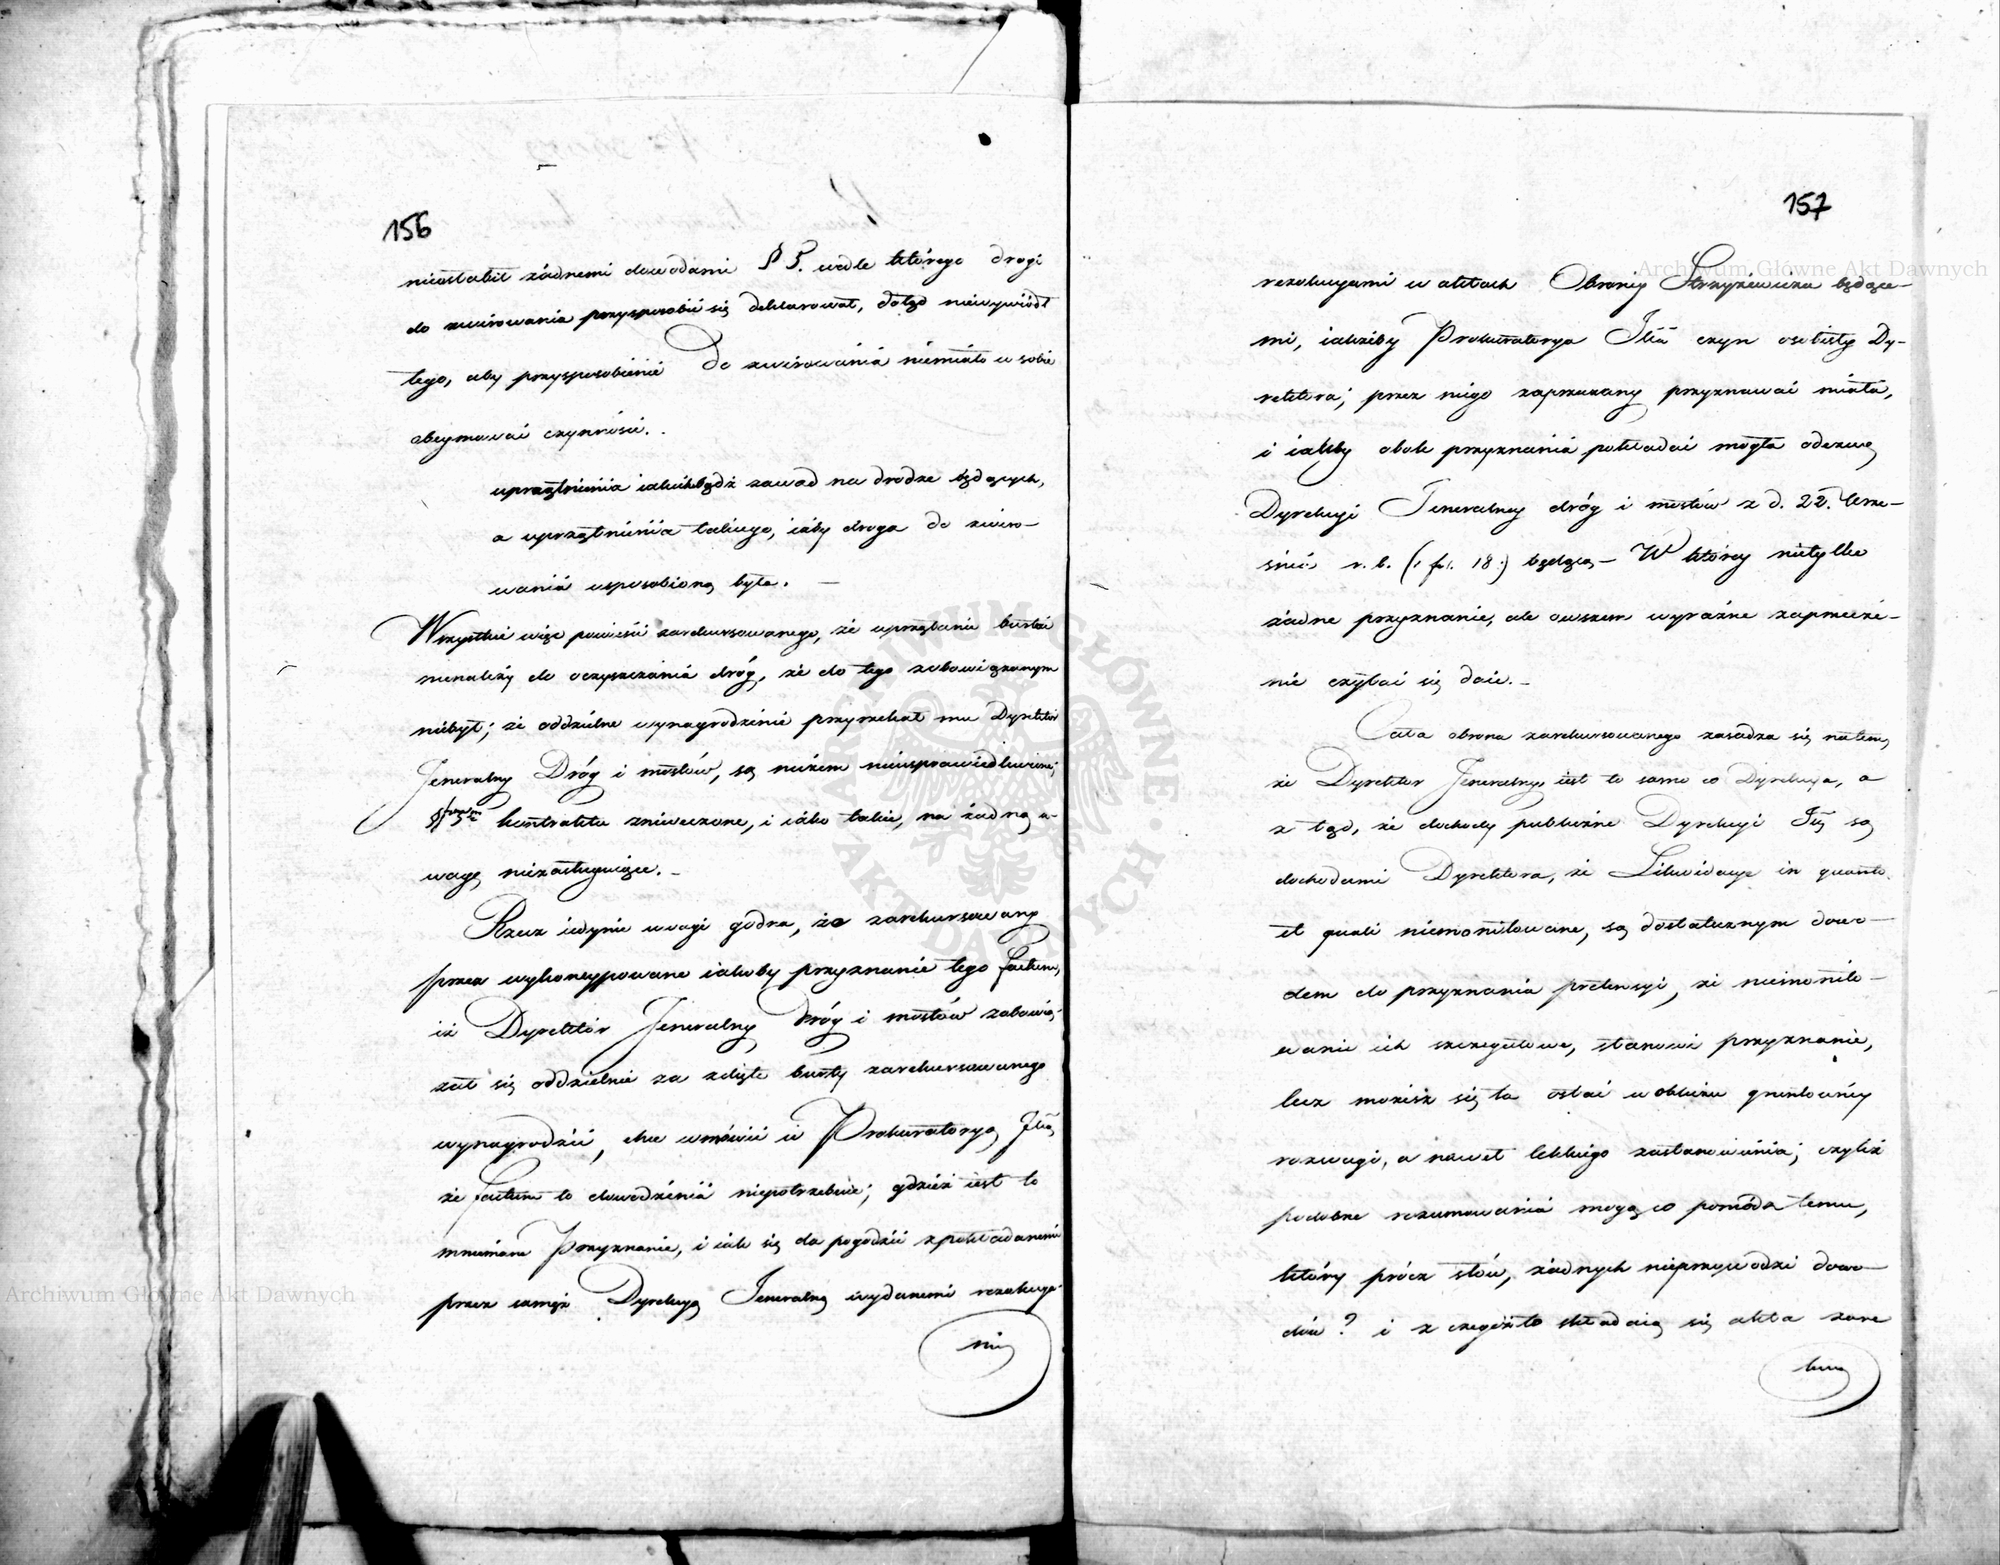 156
nieosłabił żadnemi dowodami § 5. wedle którego drogi
do żwirowania przysposobić się deklarował, dotąd niewywiódł
tego, aby przysposobienie do żwirowania niemiało w sobie
obeymować czynności.
uprzątnienia jakichbądź zawad na drodze będących,
a uprzątnienia takiego, iżby droga do żwiro-
wania usposobioną była. —
Wszystkie więc powieści zarekursowanego, że uprzątanie
nienależy do oczyszczania dróg, że do tego zobowiązanym
niebył; że oddzielne wynagrodzenie przyrzekał mu Dyrektor
Jeneralny Dróg i mostów, są niczem nieusprawiedliwione;
kontraktu zniweczone, i iako takie, na żadną u-
wagę niezasługuiące. —
Rzecz iedynie uwagi godna, że zarekursowany
przez wykoncypowane iakoby przyznanie tego factum,
iż Dyrektor Jeneralny Dróg i mostów zobowią-
zał się oddzielnie za zdięte zarekursowanego
wynagrodzić, chce wmówić w Prokuratoryą Jlną
że factum to dowodzenia niepotrzebuie; gdzież iest to
mniemane Przyznanie, i iak się da pogodzić z pokładanemi
przez samęż Dyrekcyą Jeneralną wydanemi rezolucya-
mi
157
rezolucyami w aktach Obrony Strzyżewicza będące-
mi, iakżeby Prokuratorya Jlna czyn osobisty Dy-
rektora; przez niego zaprzeczany przyznawać miała,
i iakby obok przyznania pokładać mogła odezwę
Dyrekcyi Jeneralney dróg i mostów z d. 22. Wrze-
śnia r. b. (: fol. 18 :) będącą — W którey nietylko
żadne przyznanie, ale owszem wyraźne zaprzecze-
nie czytać się daie. —
Cała obrona zarekursowanego zasadza się natem,
że Dyrektor Jeneralny iest to samo co Dyrekcya, a
z tąd, że dochody publiczne Dyrekcyi Jlney są
dochodami Dyrektora, że Likwidacye in quanto
et quali niemonitowane, są dostatecznym dowo-
dem do przyznania pretensyi, że niemonito-
wanie ich szczegułowe, stanowi przyznanie,
lecz możesz się to ostać w obliczu gruntowney
rozwagi, a nawet lekkiego zastanowienia; czyliż
podobne rozumowania mogą co pomódz temu,
który prócz słów, żadnych nieprzywodzi dowo-
dów? i z czegóż to składaią się akta zare